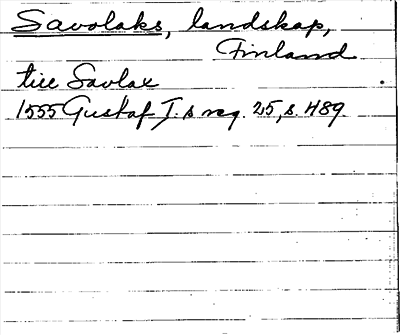 Savolaks, landskap,
Finland
till Savlax
1555 Gustaf I.s reg. 25, s. 489.